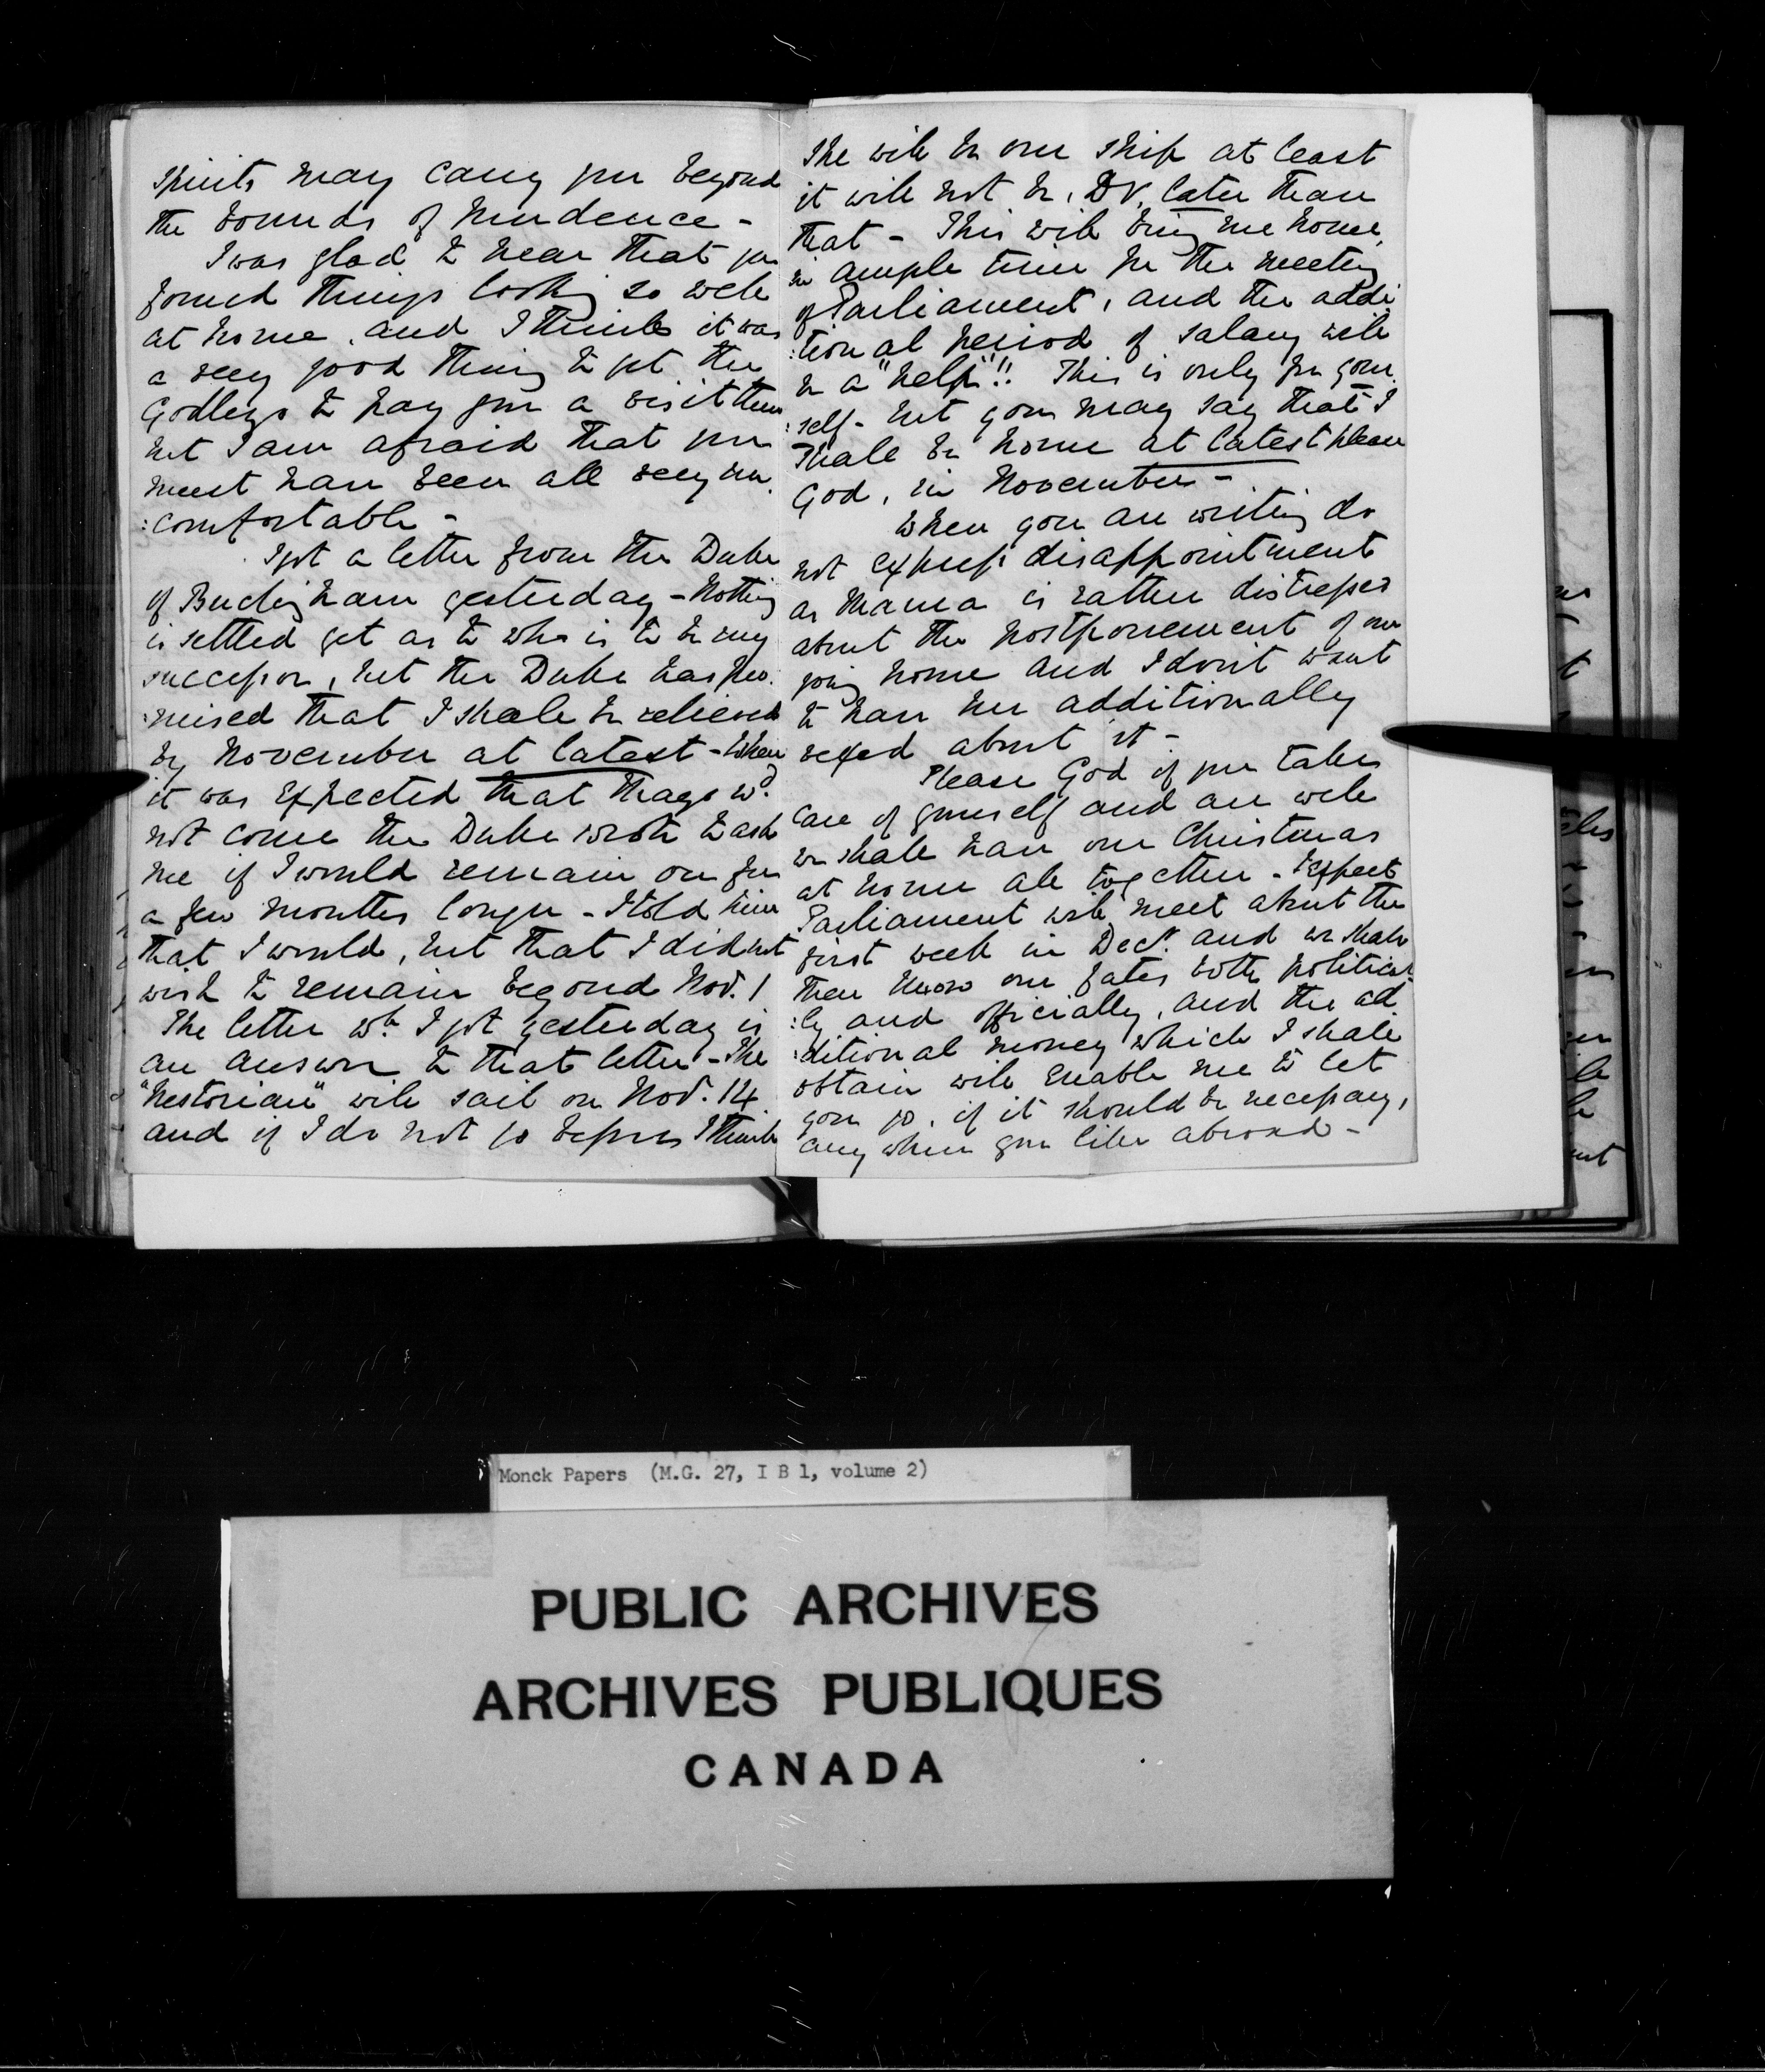 spirits may carry you beyond
the bounds of prudence -
I was glad to hear that you
found things looking so well
at home, and I think it was
a very good thing to get the
Godleys to pay you a visit then
but I am afraid that you
must have been all very un
:comfortable -
I got a letter from the Duke
of Buckingham yesterday - Nothing
is settled yet as to who is to be my
successor, but the Duke has pro:
:mised that I shall be relieved
by November at latest - When
it was expected that Mayo wd.
not come the Duke wrote to ask
me if I would remain on for
a few months longer - I told him
that I would, but that I did not
wish to remain beyond Nov. 1
The letter wh. I got yesterday is
an answer to that letter - The
"Nestorian" will sail on Novr. 14
and if I do not go before I think
she will be our ship at least
it will not be, D.V. later than
that - This will bring me home,
in ample time for the meeting
of Parliament, and the addi
:tional period of salary will
be a "help"!! This is only for your
:self - but you may say that I
shall be home at latest please
God, in November -
When you are writing do
not express disappointment
as Mama is rather distressed
about the postponement of our
going home and I don't want
to have her additionally
vexed about it -
Please God if you take
care of yourself and are well
we shall have our Christmas
at home all together - I expect
Parliament will meet about the
first week in Decr. and we shall
then know our fates both political
:ly and officially, and the ad
:ditional money which I shall
obtain will enable me to let
you go, if it should be necessary,
any where you like abroad -
Monck Papers (M.G. 27, I B 1, volume 2)
PUBLIC ARCHIVES
ARCHIVES PUBLIQUES
CANADA